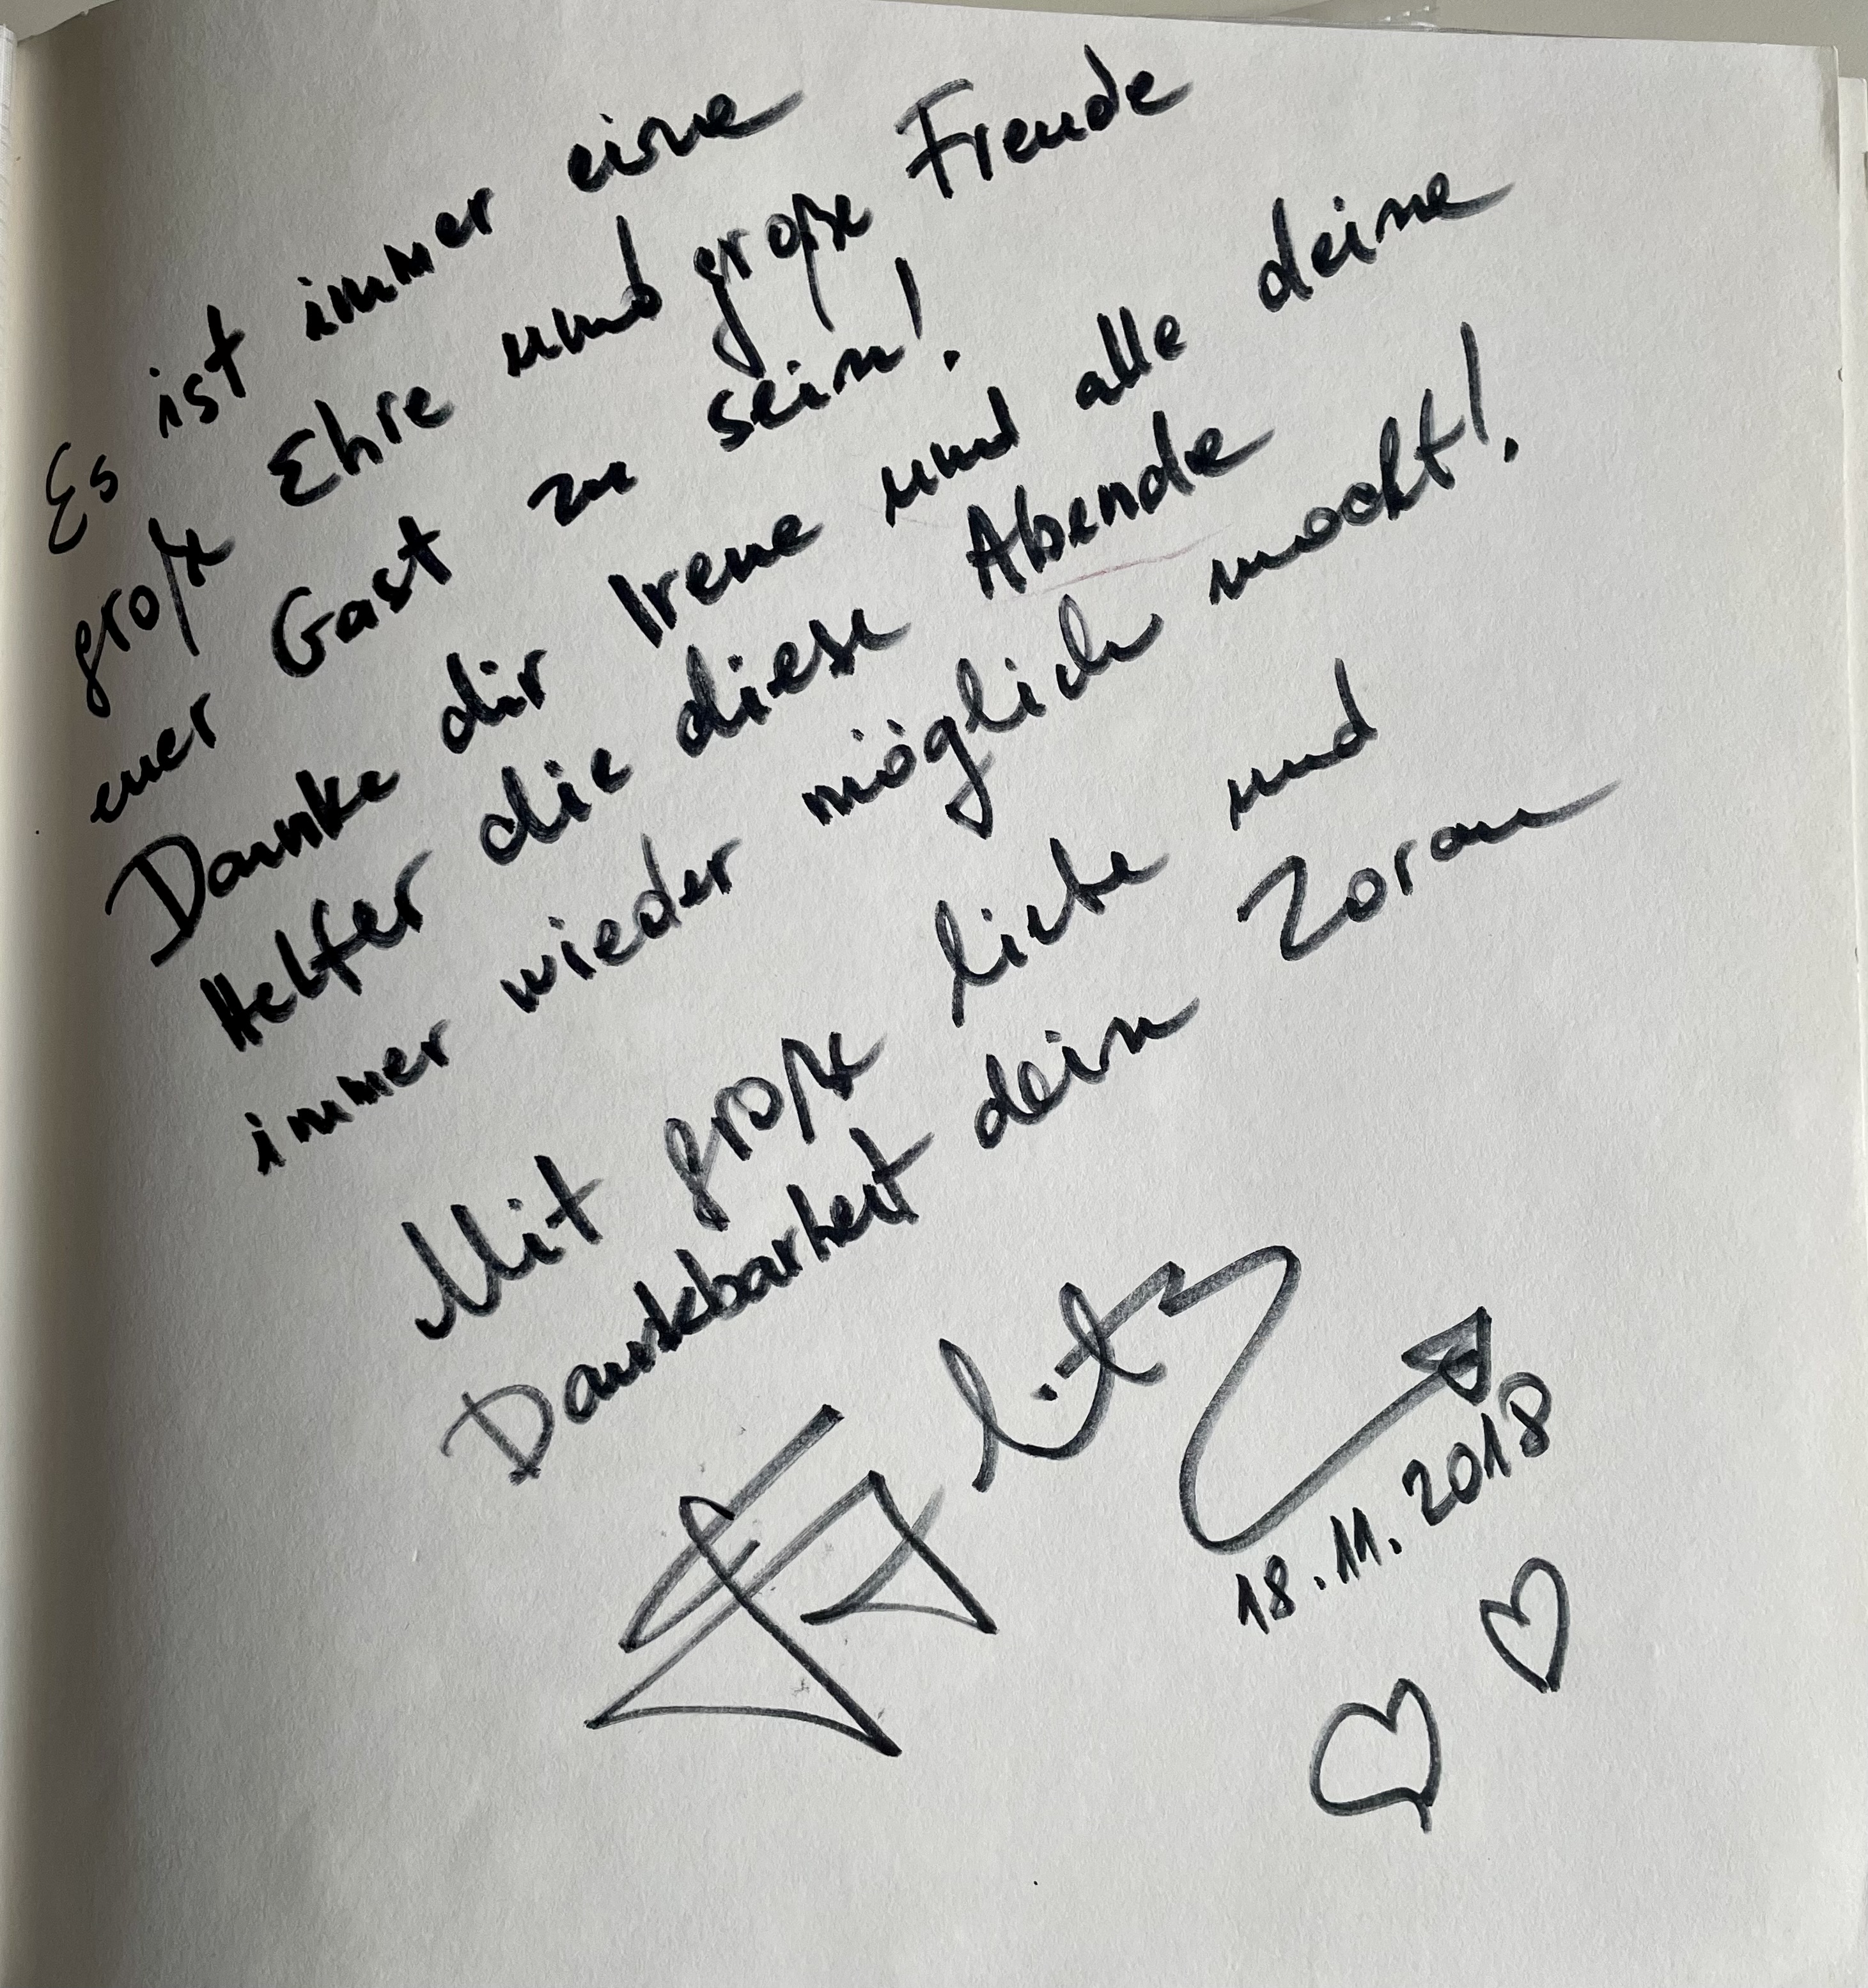 Es ist immer eine
große Ehre und große Freude
euer Gast zu sein!
Danke dir Irene und alle deine
Helfer die diese Abende
immer wieder möglich macht!
Mit große liebe und
Dankbarkeit dein Zoran
18.11.2018